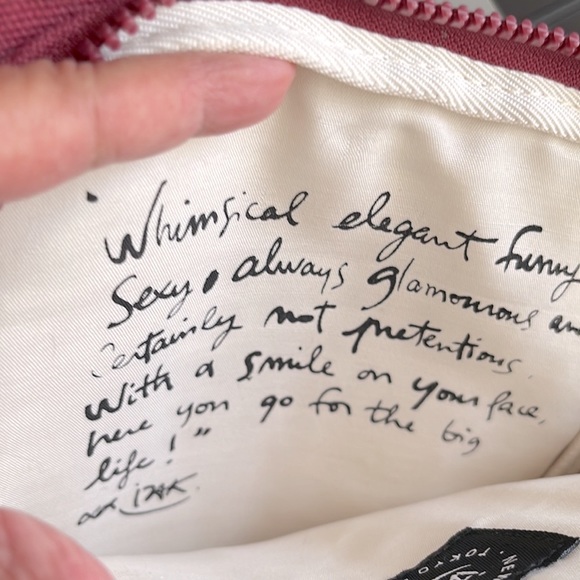 "Whimsical elegant funny
Sexy, always glamourous an
Certainly not pretentious.
With a smile on your face,
here you go for the big
life!"
IZAK
NE
TOKYO